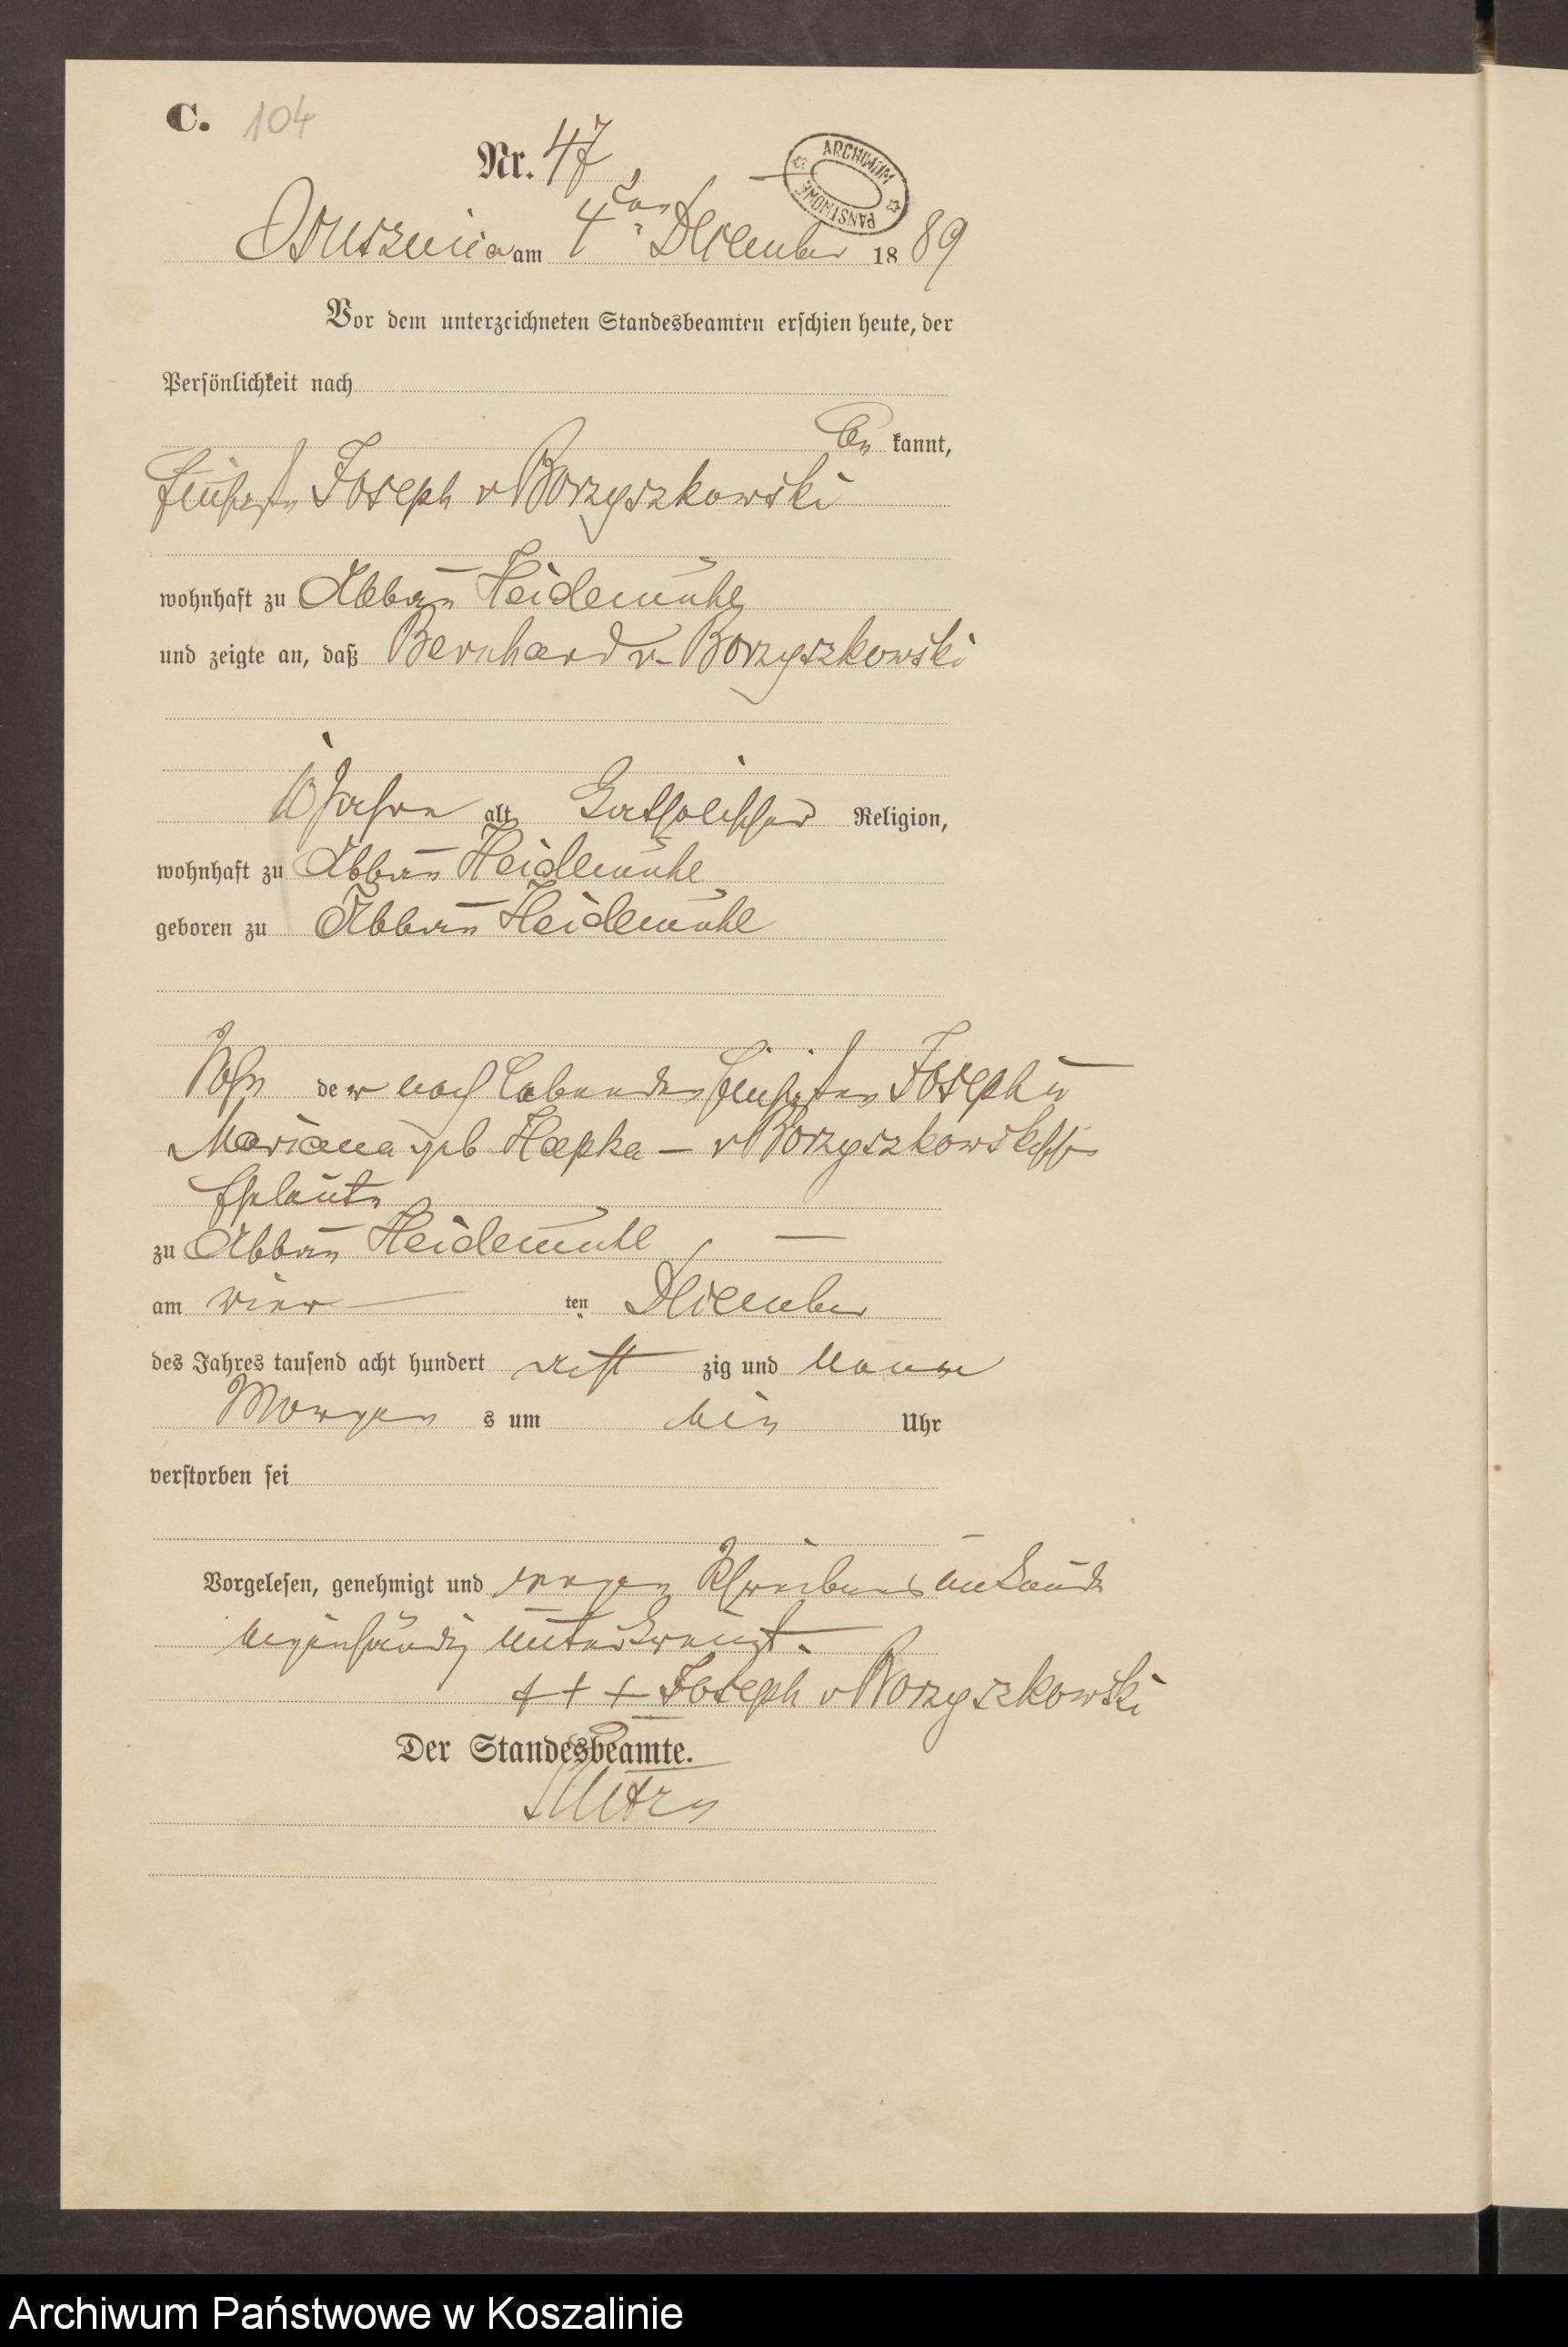 C. 104
ARCHIWUM PAŃSTWOWE
Nr. 47
Borzyszkowy am 4ten December 1889
Vor dem unterzeichneten Standesbeamten erschien heute, der
Persönlichkeit nach
be kannt,
Joseph v Borzyszkowski
wohnhaft zu Abbau Heidemühle
und zeigte an, daß Bernhard v. Borzyszkowski
10 Jahre alt, katholischer Religion,
wohnhaft zu Abbau Heidemühl
geboren zu Abbau Heidemühl
Sohn der noch lebenden Joseph u
Mariana geb Hapka – v Borzyszkowskischen
Eheleute
zu Abbau Heidemühl
am vier ten December
des Jahres tausend acht hundert acht zig und neun
Morgen s um ein Uhr
verstorben sei
Vorgelesen, genehmigt und wegen Schreibensunkunde
eigenhändig unterkreuzt.
+ + + Joseph v Borzyszkowski
Der Standesbeamte.
Archiwum Państwowe w Koszalinie